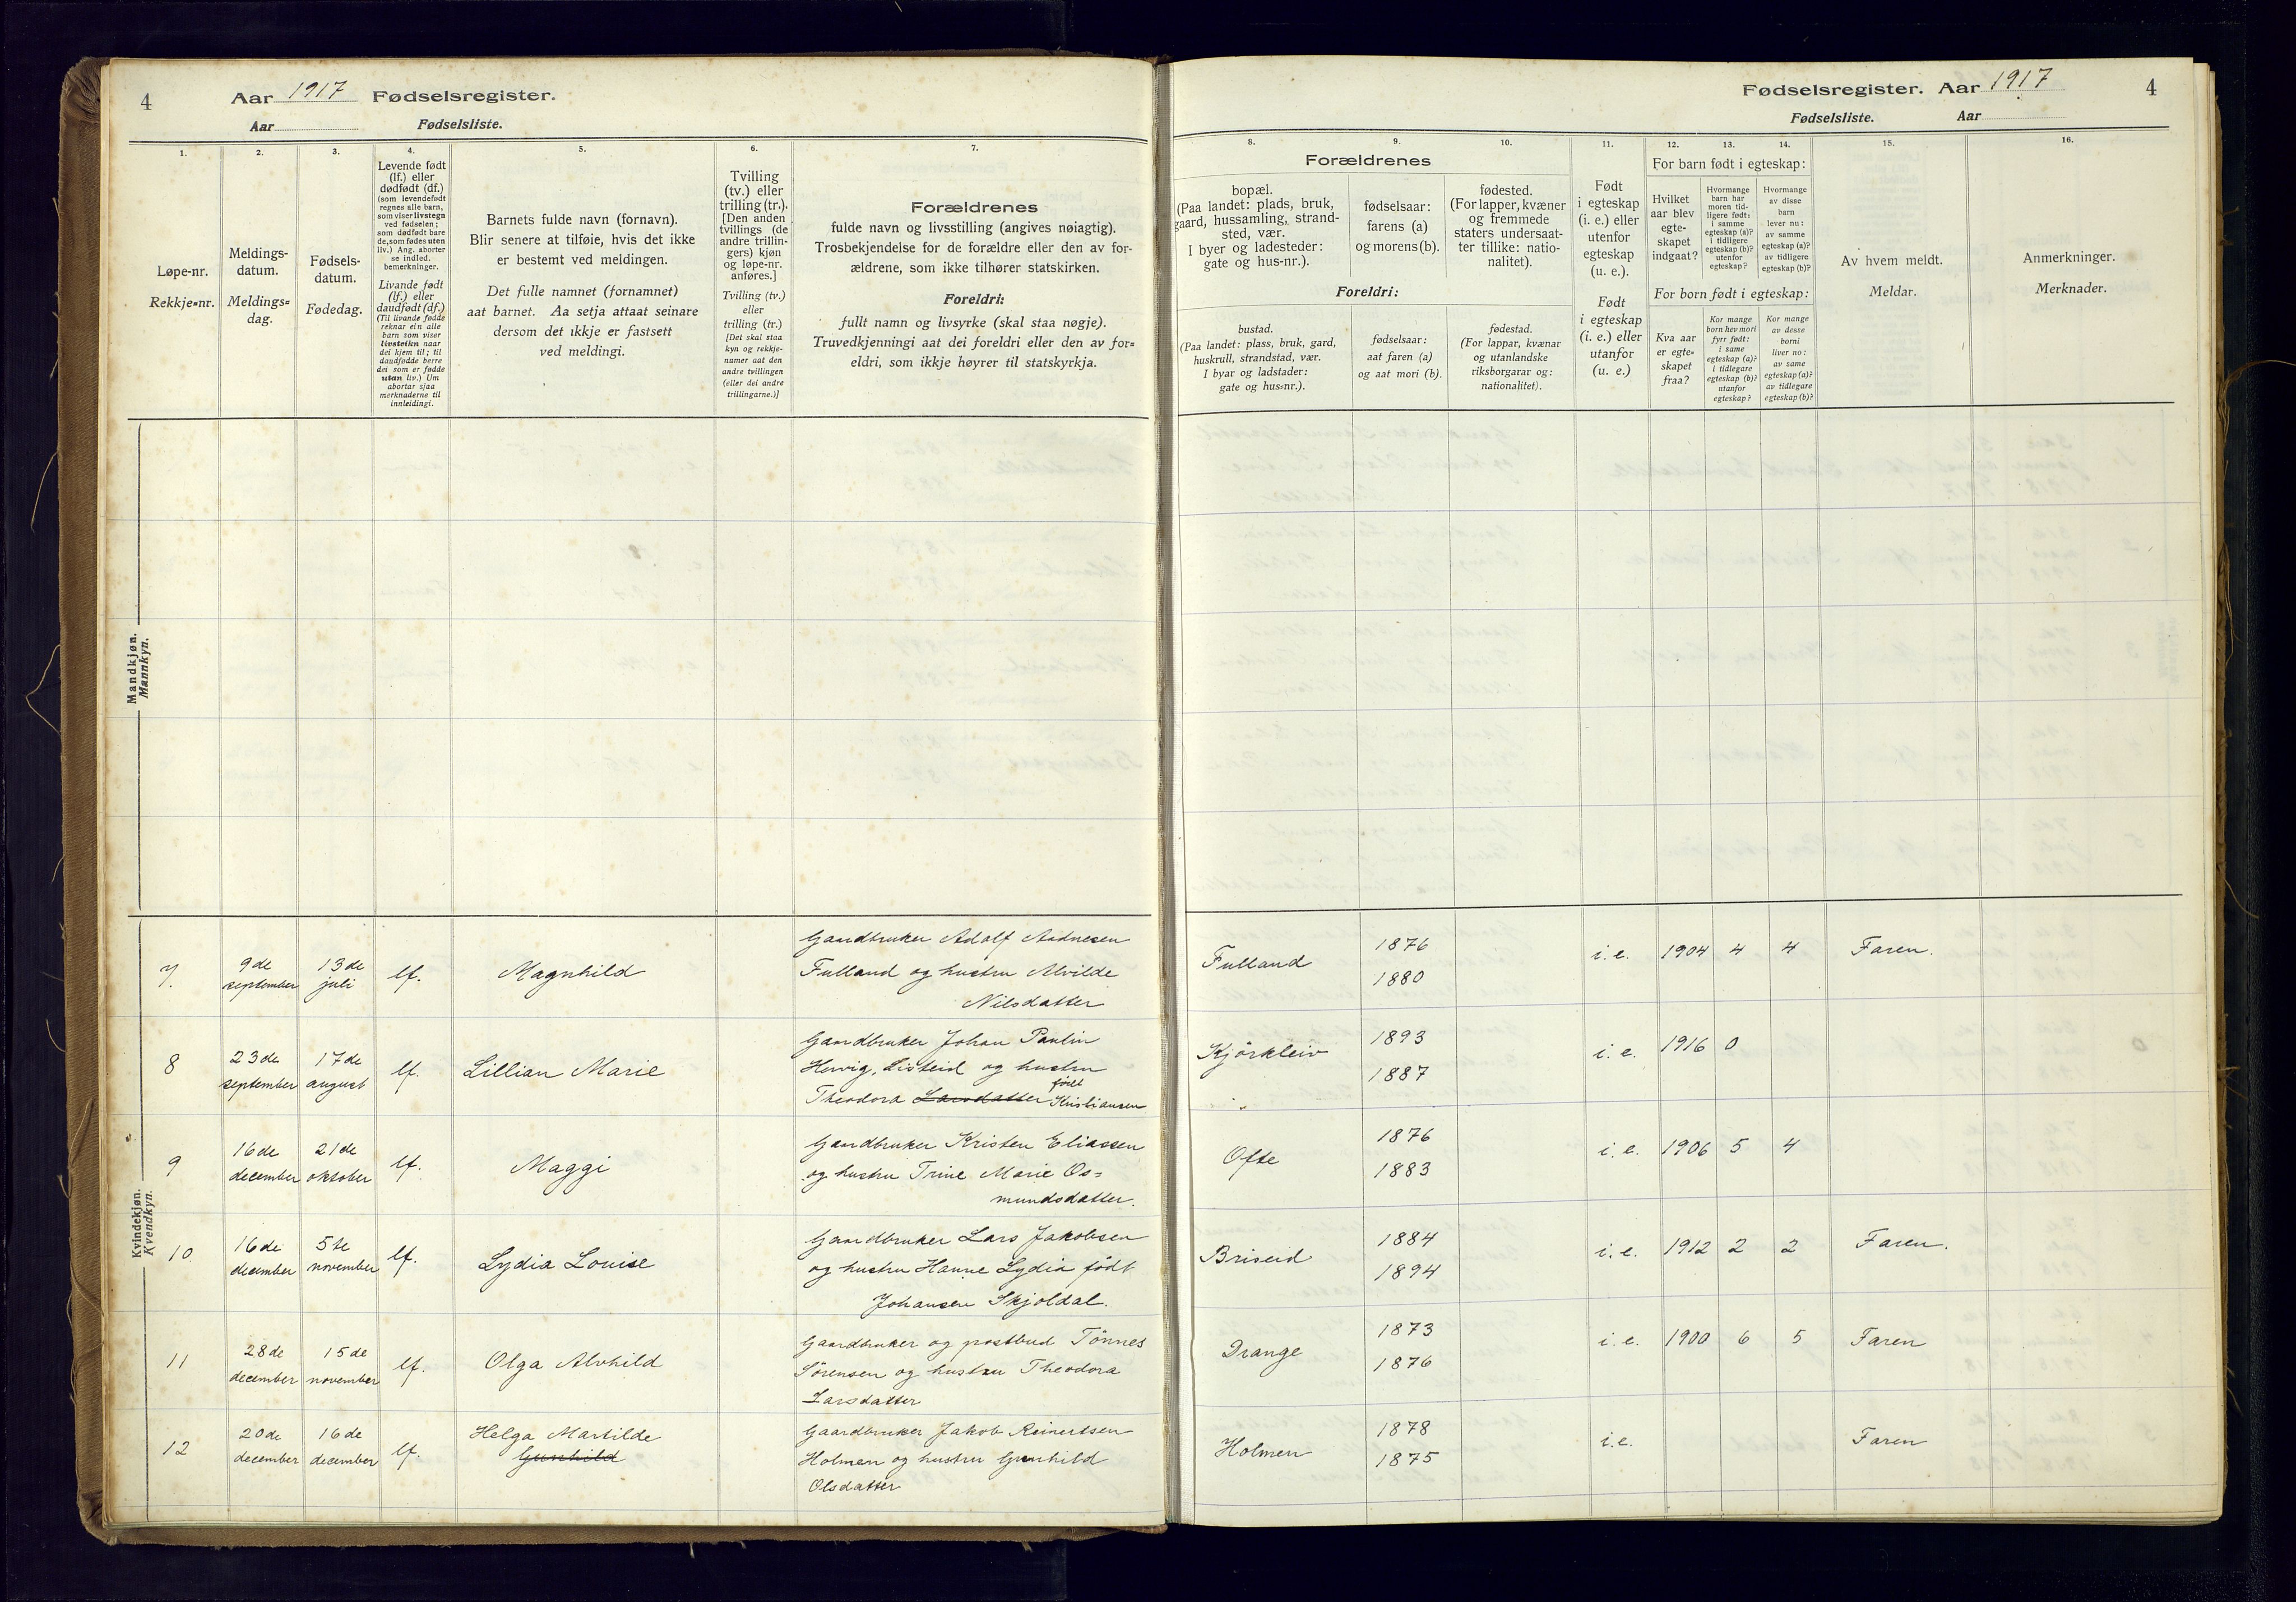 4
Aar 1917 Fødselsregister.
Aar Fødselsliste.
Fødselsregister. Aar 1917
4
Fødselsliste. Aar
1.
Løpe-nr.
Rekkje=nr.
2.
Meldings-
datum.
Meldings=
dag.
3.
Fødsels-
datum.
Fødedag.
4.
Levende født
(lf.) eller
dødfødt (df.)
(som levendefødt
regnes alle barn,
som viser livstegn
ved fødselen;
som dødfødt bare
de, som fødes uten
liv.) Ang. aborter
se indled.
bemerkninger.
Livande født
(lf.) eller
daudfødt (df.)
(Til livande fødde
reknar ein alle
barn som viser
livsteikn naar
dei kjem til; til
daudfødde berre
dei som er fødde
utan liv.) Um
abortar sjaa
merknaderne til
innleidingi.
5.
Barnets fulde navn (fornavn).
Blir senere at tilføie, hvis det ikke
er bestemt ved meldingen.
Det fulle namnet (fornamnet)
aat barnet. Aa setja attaat seinare
dersom det ikkje er fastsett
ved meldingi.
6.
Tvilling
(tv.) eller
trilling (tr.).
[Den anden
tvillings (de
andre trillin-
gers) kjøn
og løpe-nr.
anføres.]
Tvilling (tv.)
eller
trilling (tr.)
[Dei skal staa
kyn og rekkje-
numer aat den
andre tvillingen
(eller dei andre
trillingarne.)]
7.
Forældrenes
fulde navn og livsstilling (angives nøiagtig).
Trosbekjendelse for de forældre eller den av for-
ældrene, som ikke tilhører statskirken.
Foreldri:
fullt namn og livsyrke (skal staa nøgje).
Truvedkjenningi aat dei foreldri eller den av for=
eldri, som ikkje høyrer til statskyrkja.
8. 9. 10.
Forældrenes
bopæl.
(Paa landet: plads, bruk,
gaard, hussamling, strand-
sted, vær.
I byer og ladesteder:
gate og hus-nr.).
fødselsaar:
farens (a)
og morens (b).
fødested.
(For lapper, kvæner
og fremmede
staters undersaat-
ter tillike: natio-
nalitet).
Foreldri:
bustad.
(Paa landet: plass, bruk, gard,
huskrull, strandstad, vær.
I byar og ladstader:
gate og hus=nr.).
fødselsaar:
aat faren (a)
og aat mori (b).
fødestad.
(For lappar, kvænar
og utanlandske
riksborgarar og:
nationalitet).
11.
Født
i egteskap
(i. e.) eller
utenfor
egteskap
(u. e.).
Født
i egteskap
(i. e.) eller
utanfor
(u. e.)
12. 13. 14.
For barn født i egteskap:
Hvilket
aar blev
egte-
skapet
indgaat?
Hvormange
barn har
moren tid-
ligere født:
i samme
egteskap (a)?
i tidligere
egteskap (b)?
utenfor
egteskap?
Hvormange
av disse
barn
lever nu:
av samme
egteskap (a)?
av tidligere
egteskap (b)?
For born født i egteskap:
Kva aar
er egte=
skapet
fraa?
Kor mange
born hev mori
fyrr født:
i same
egteskap (a)?
i tidlegare
egteskap (b)?
utanfor
egteskap?
Kor mange
av desse
borni
liver no:
av same
egteskap (a)?
av tidlegare
egteskap (b)?
15.
Av hvem meldt.
Meldar.
16.
Anmerkninger.
Merknader.
Mandkjøn.
Mannkyn.
Kvindekjøn.
Kvendkyn.
7. 9de september 13de juli lf. Magnhild
Gaardbruker Adolf Aadnesen
Fulland og hustru Alvilde
Nilsdatter
Fulland 1876 1880 i. e. 1904 4 4 Faren.
8 23de september 17de august lf. Lillian Marie
Gaardbruker Johan Paulin
Hervig, Listeid og hustru
Theodora Larsdatter født Kristiansen
Kjørkleiv 1893 1887 i. e. 1916 0
9 16de december 21de oktober lf. Maggi
Gaardbruker Kristen Eliassen
og hustru Trine Marie Os=
mundsdatter.
Ofte 1876 1883 i. e. 1906 5 4
10 16de december 5te november lf. Lydia Louise
Gaardbruker Lars Jakobsen
og hustru Hanne Lydia født
Johansen Skjoldal.
Briseid 1884 1894 i. e. 1912 2 2 Faren.
11 28de december 15de november lf. Olga Alvhild
Gaardbruker og postbud Tönnes
Sörensen og hustru Theodora
Larsdatter
Drange 1873 1876 i. e. 1900 6 5 Faren
12 20de december 16de december lf. Helga Martilde
Gunhild
Gaardbruker Jakob Reinertsen
Holmen og hustru Gunhild
Olsdatter
Holmen 1878 1875 i. e. Faren